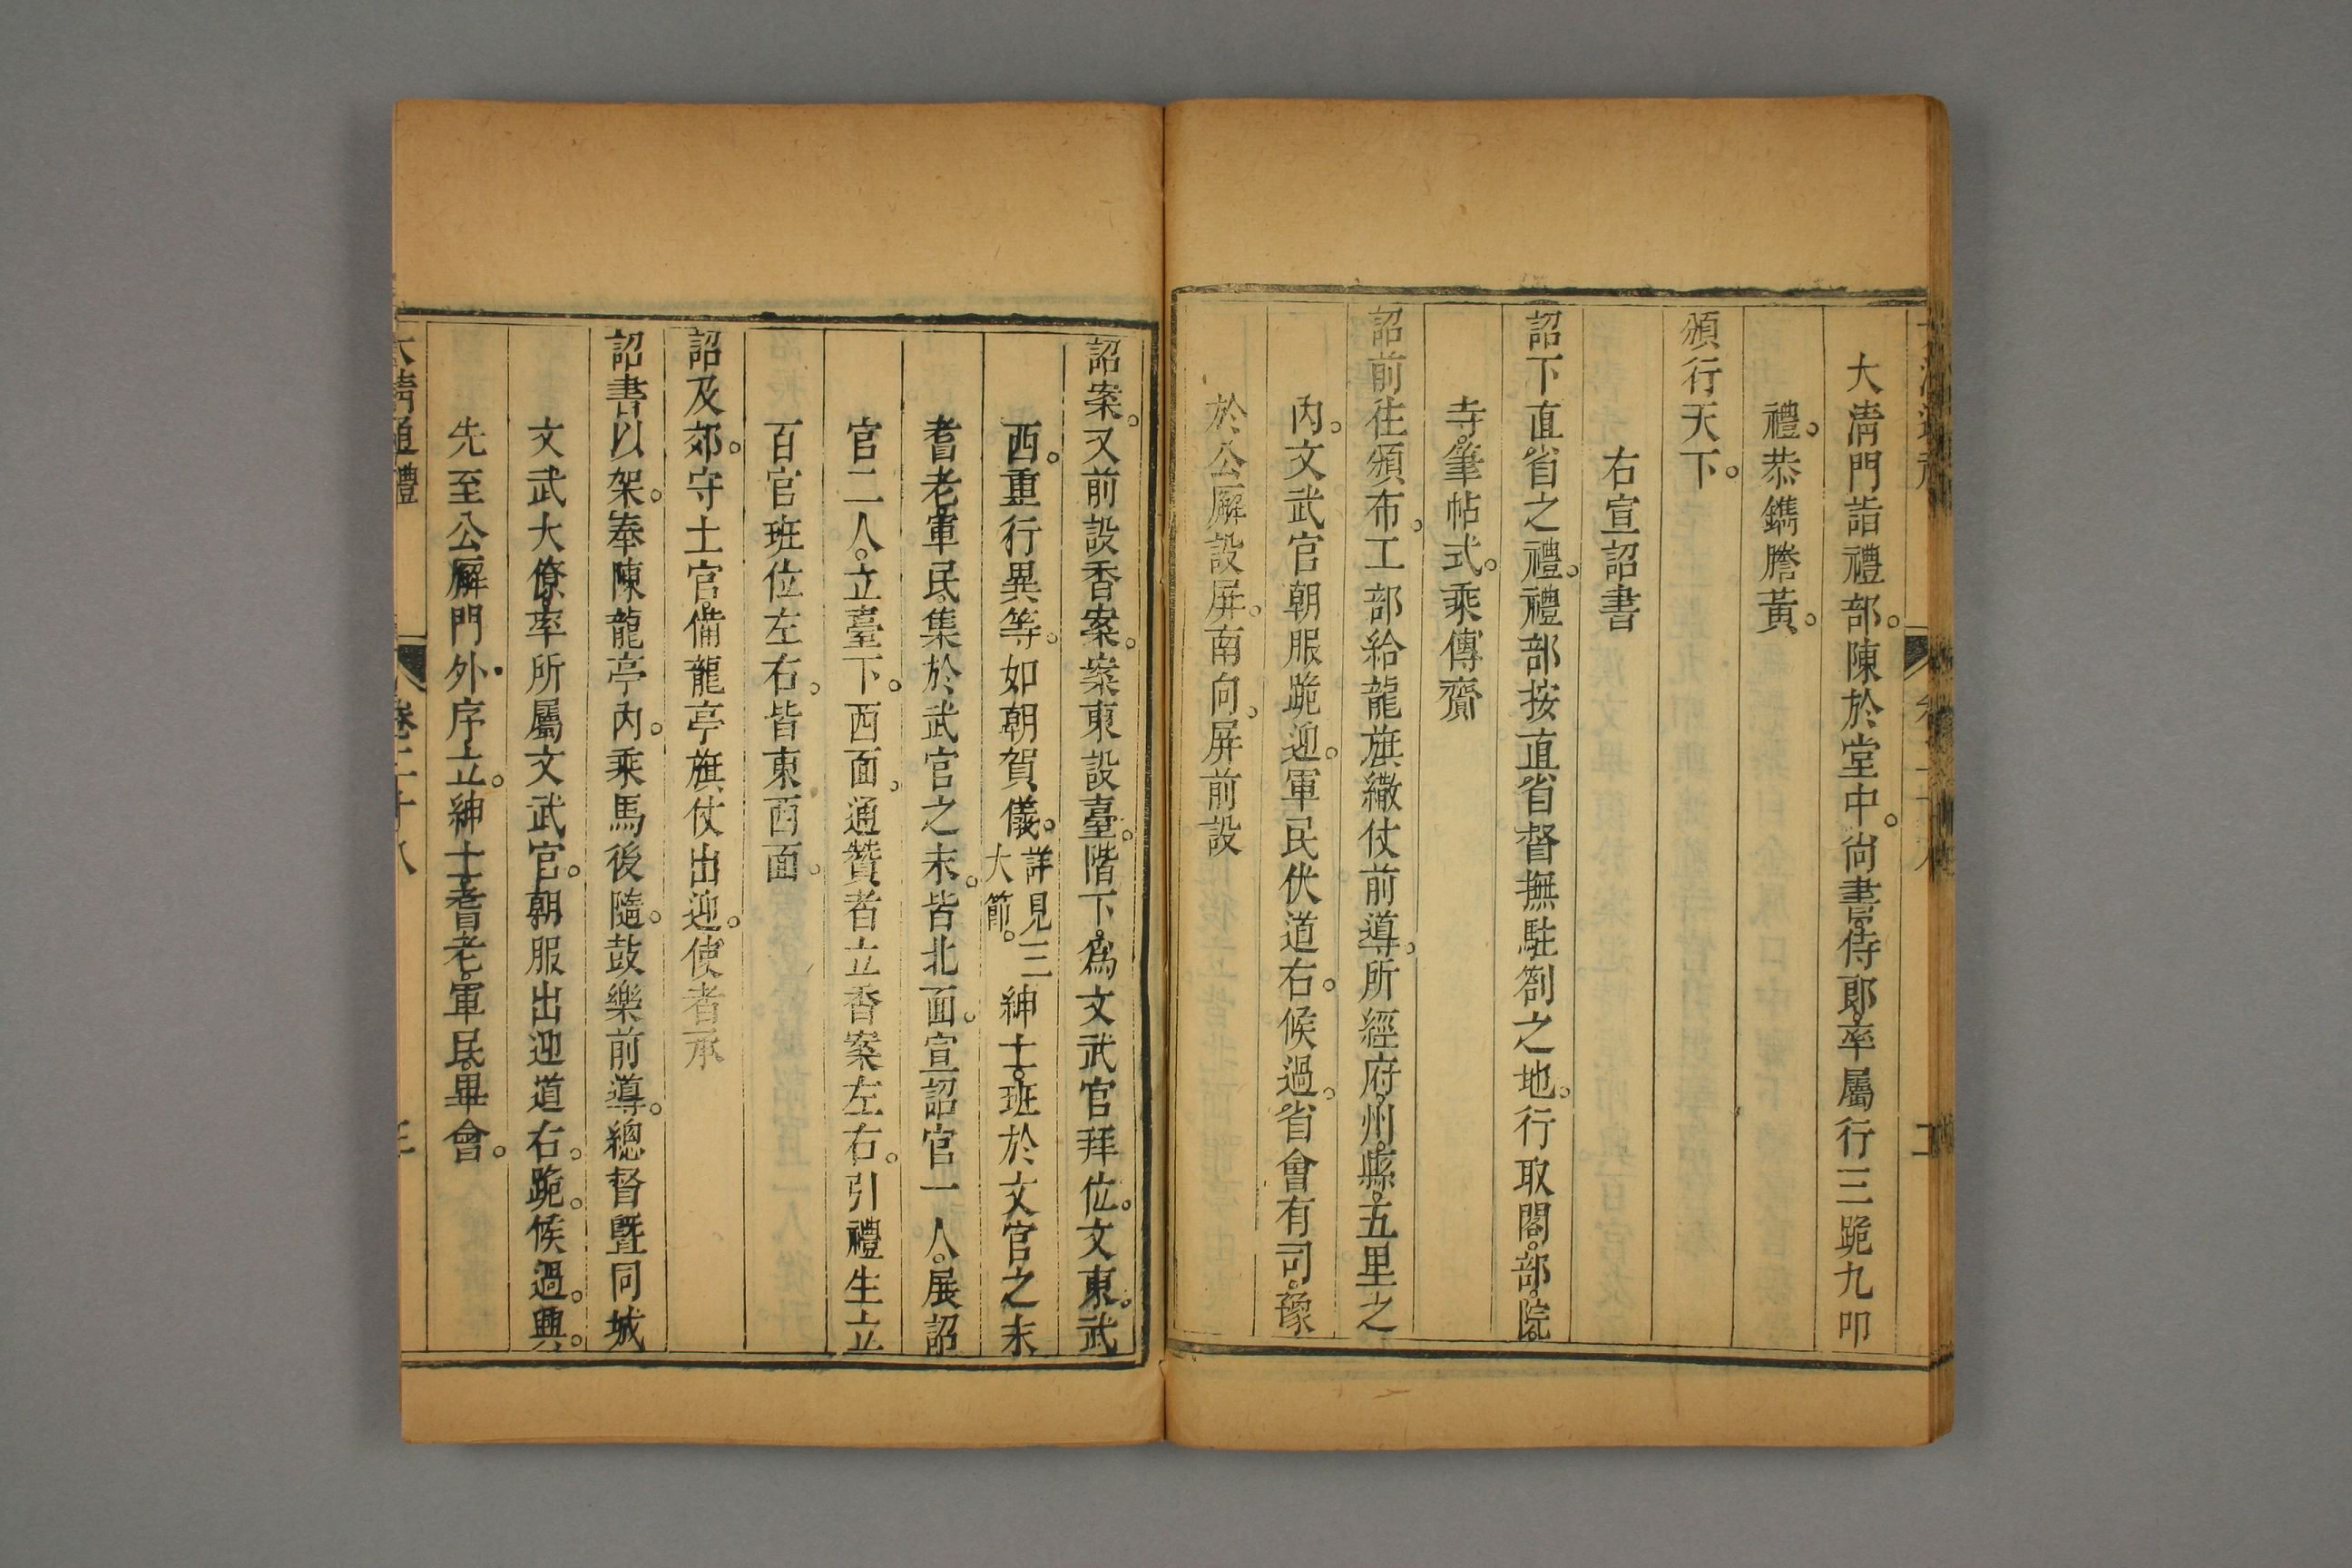 大清門詣禮部。陳於堂中。尙書。侍郞。率屬行三跪九叩
禮。恭鐫謄黃。
頒行天下。
右宣詔書
詔下直省之禮。禮部按直省督撫駐劄之地。行取閣。部。院。
寺。筆帖式。乘傳齎
詔前往頒布。工部給龍旗繖仗前導。所經府。州。縣。五里之
內。文武官朝服跪迎。軍民伏道右。候過。省會有司。豫
於公廨設屛。南向。屛前設
詔案。又前設香案。案東設臺。階下。爲文武官拜位。文東。武
西。重行異等。如朝賀儀。詳見三大節。紳士。班於文官之末
耆老。軍民。集於武官之末。皆北面。宣詔官一人。展詔
官二人。立臺下。西面。通贊者立香案左右。引禮生立
百官班位左右。皆東西面。
詔及郊。守土官。備龍亭旗仗出迎。使者承
詔書以架。奉陳龍亭內。乘馬後隨。鼓樂前導。總督曁同城
文武大僚。率所屬文武官。朝服出迎道右。跪。候過。興。
先至公廨門外。序立。紳士。耆老。軍民。畢會。
大淸通禮 卷二十八 三